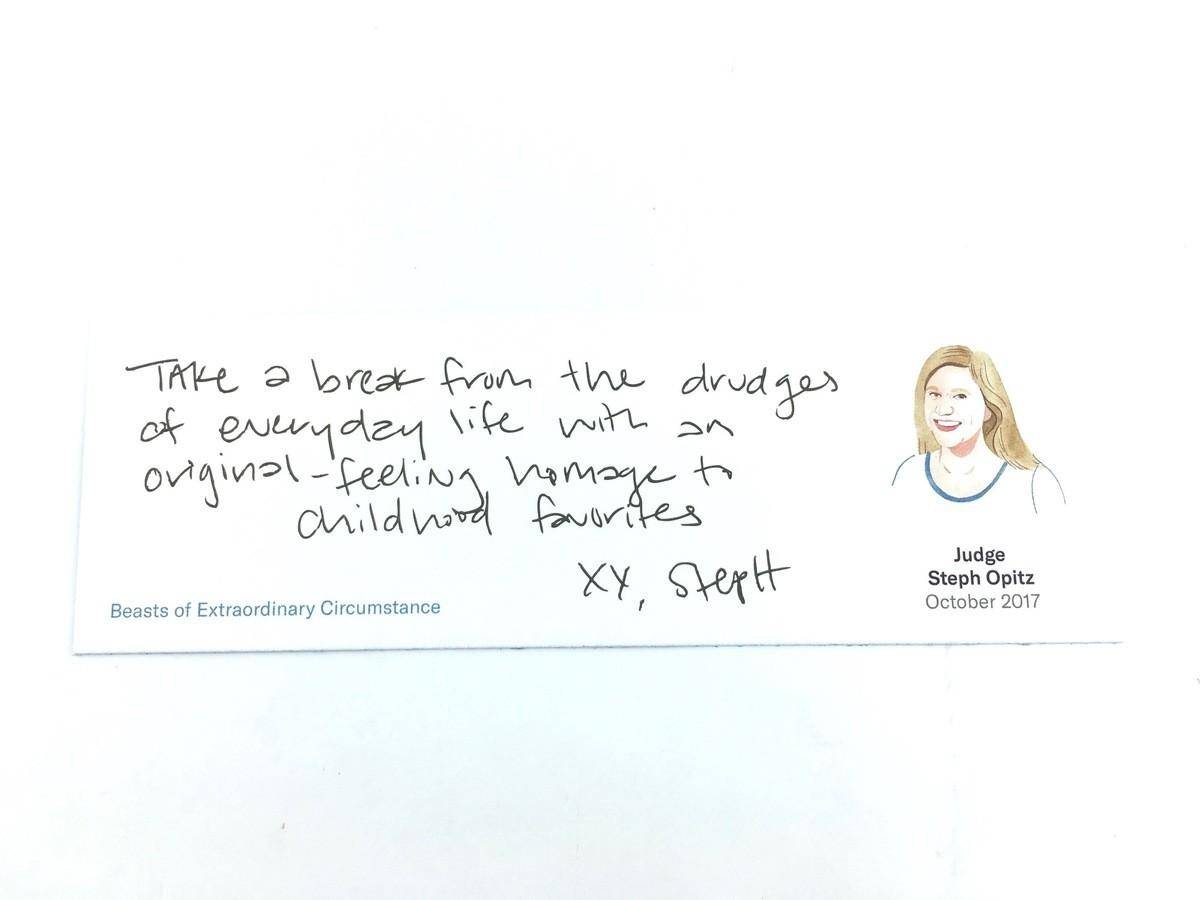 TAKe a break from the drudges
of everyday life with an
original-feeling homage to
childhood favorites
XY, StepH
Beasts of Extraordinary Circumstance
Judge
Steph Opitz
October 2017